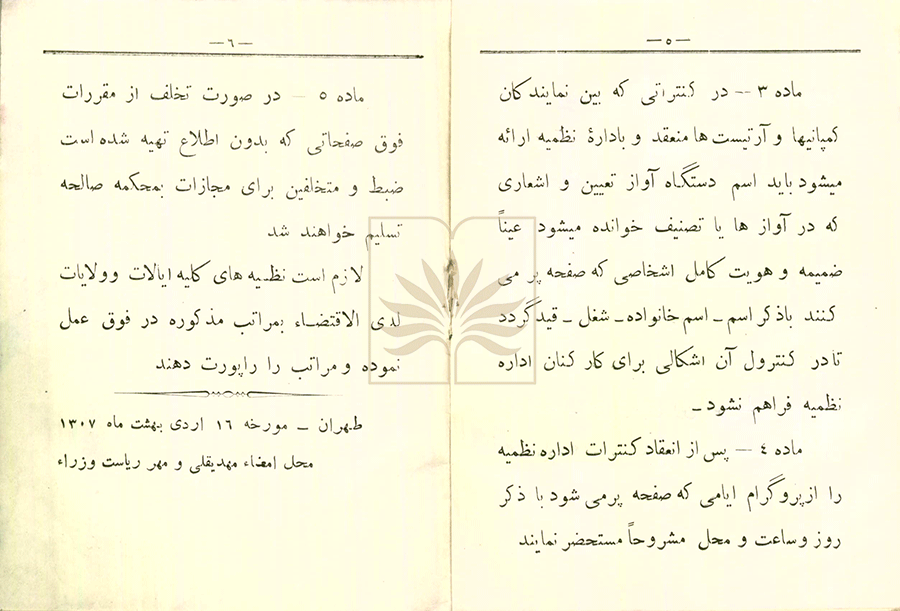 — ۵ —
ماده ۳ — در کنتراتی که بین نمایندگان
کمپانیها و آرتیست ها منعقد و بادارهٔ نظمیه ارائه
میشود باید اسم دستگاه آواز تعیین و اشعاری
که در آواز ها یا تصنیف خوانده میشود عیناً
ضمیمه و هویت کامل اشخاصی که صفحه پر می
کنند باذکر اسم ـ اسم خانواده ـ شغل ـ قیدگردد
تادر کنترول آن اشکالی برای کارکنان اداره
نظمیه فراهم نشود ـ
ماده ٤ — پس از انعقاد کنترات اداره نظمیه
را ازپروگرام ایامی که صفحه پرمی شود با ذکر
روز وساعت و محل مشروحاً مستحضر نمایند
— ٦ —
ماده ۵ — در صورت تخلف از مقررات
فوق صفحاتی که بدون اطلاع تهیه شده است
ضبط و متخلفین برای مجازات بمحکمه صالحه
تسلیم خواهند شد
لازم است نظمیه های کلیه ایالات وولایات
لدی الاقتضاء بمراتب مذکوره در فوق عمل
نموده و مراتب را راپورت دهند
طهران ـ مورخه ۱٦ اردی بهشت ماه ۱۳۰۷
محل امضاء مهدیقلی و مهر ریاست وزراء